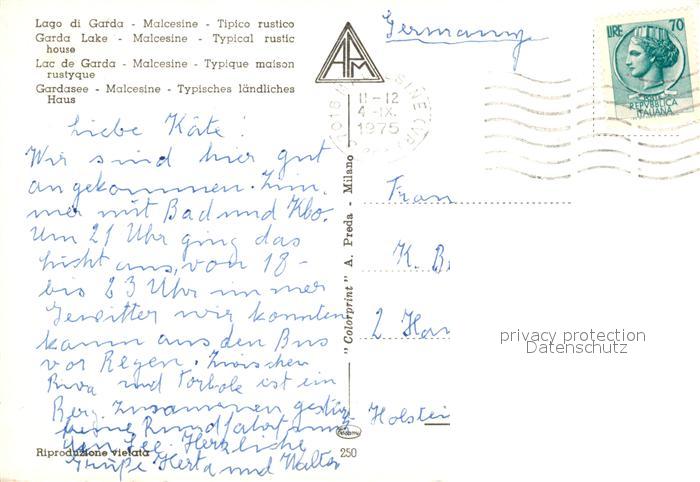 Lago di Garda - Malcesine - Tipico rustico
Garda Lake - Malcesine - Typical rustic
house
Lac de Garda - Malcesine - Typique maison
rustyque
Gardasee - Malcesine - Typisches ländliches
Haus
APM
Germany
LIRE 70
REPVBBLICA
ITALIANA
11-12
4-IX
1975
Liebe Käte!
Wir sind hier gut
angekommen. Zim.
mer mit Bad und Klo.
Um 21 Uhr ging das
Licht aus, von 18-
bis 23 Uhr immer
Gewitter wir konnten
kaum aus den Bus
vor Regen. Zwischen
Riva und Torbole ist ein
Berg zusammen
keine Rundfahrt um
den See. Herzliche
Grüße Herta und Walter
"Colorprint" A. Preda - Milano
Frau
K. B
2 Ham
Holstein
privacy protection
Datenschutz
Riproduzione vietata
250